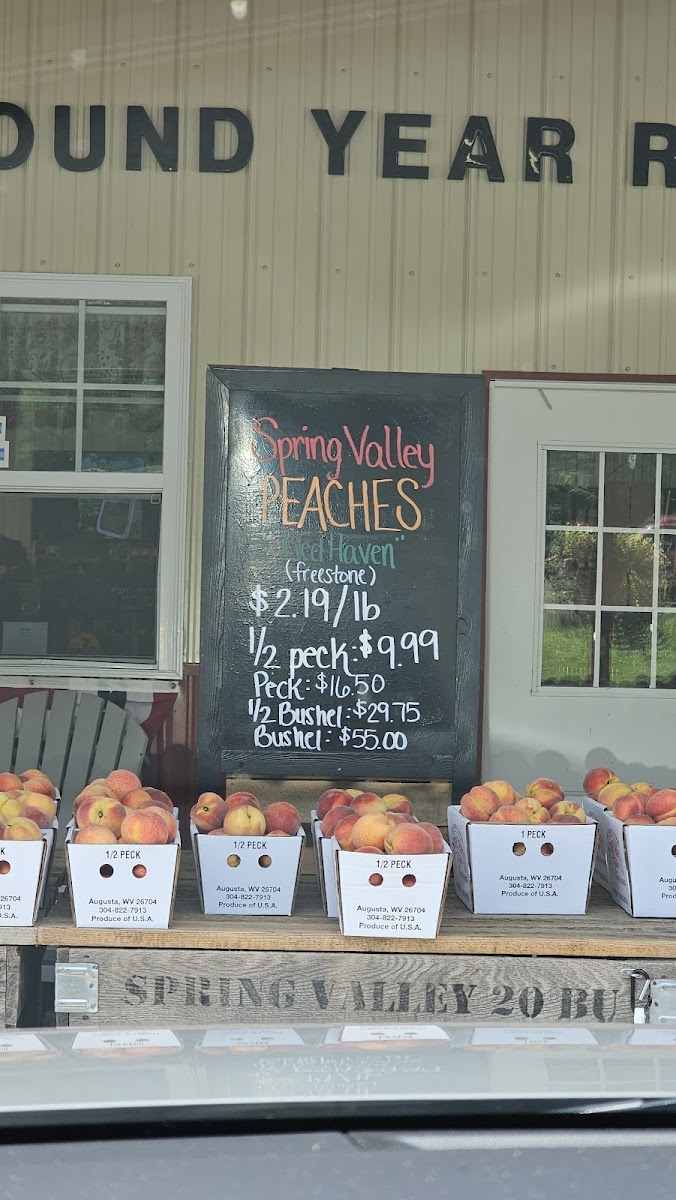 OUND YEAR R
Spring Valley
PEACHES
Haven"
(freestone)
$2.19/lb
1/2 peck: $9.99
Peck: $16.50
1/2 Bushel: $29.75
Bushel: $55.00
1/2 PECK
Augusta, WV 26704
304-822-7913
Produce of U.S.A.
1/2 PECK
Augusta, WV 26704
304-822-7913
Produce of U.S.A.
1/2 PECK
Augusta, WV 26704
304-822-7913
Produce of U.S.A.
1 PECK
Augusta, WV 26704
304-822-7913
Produce of U.S.A.
SPRING VALLEY 20 BU